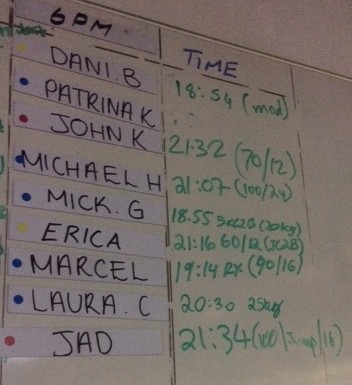 6PM
TIME
DANI.B 18:54 (mod)
PATRINA K
JOHN K 21:32 (70/12)
MICHAEL H 21:07 (100/24)
MICK.G 18.55 (20kg)
ERICA 21:16 60/12 (JC2B)
MARCEL 19:14 RX (90/16)
LAURA.C 20:30 25kg
JAD 21:34 (100/Jump/16)